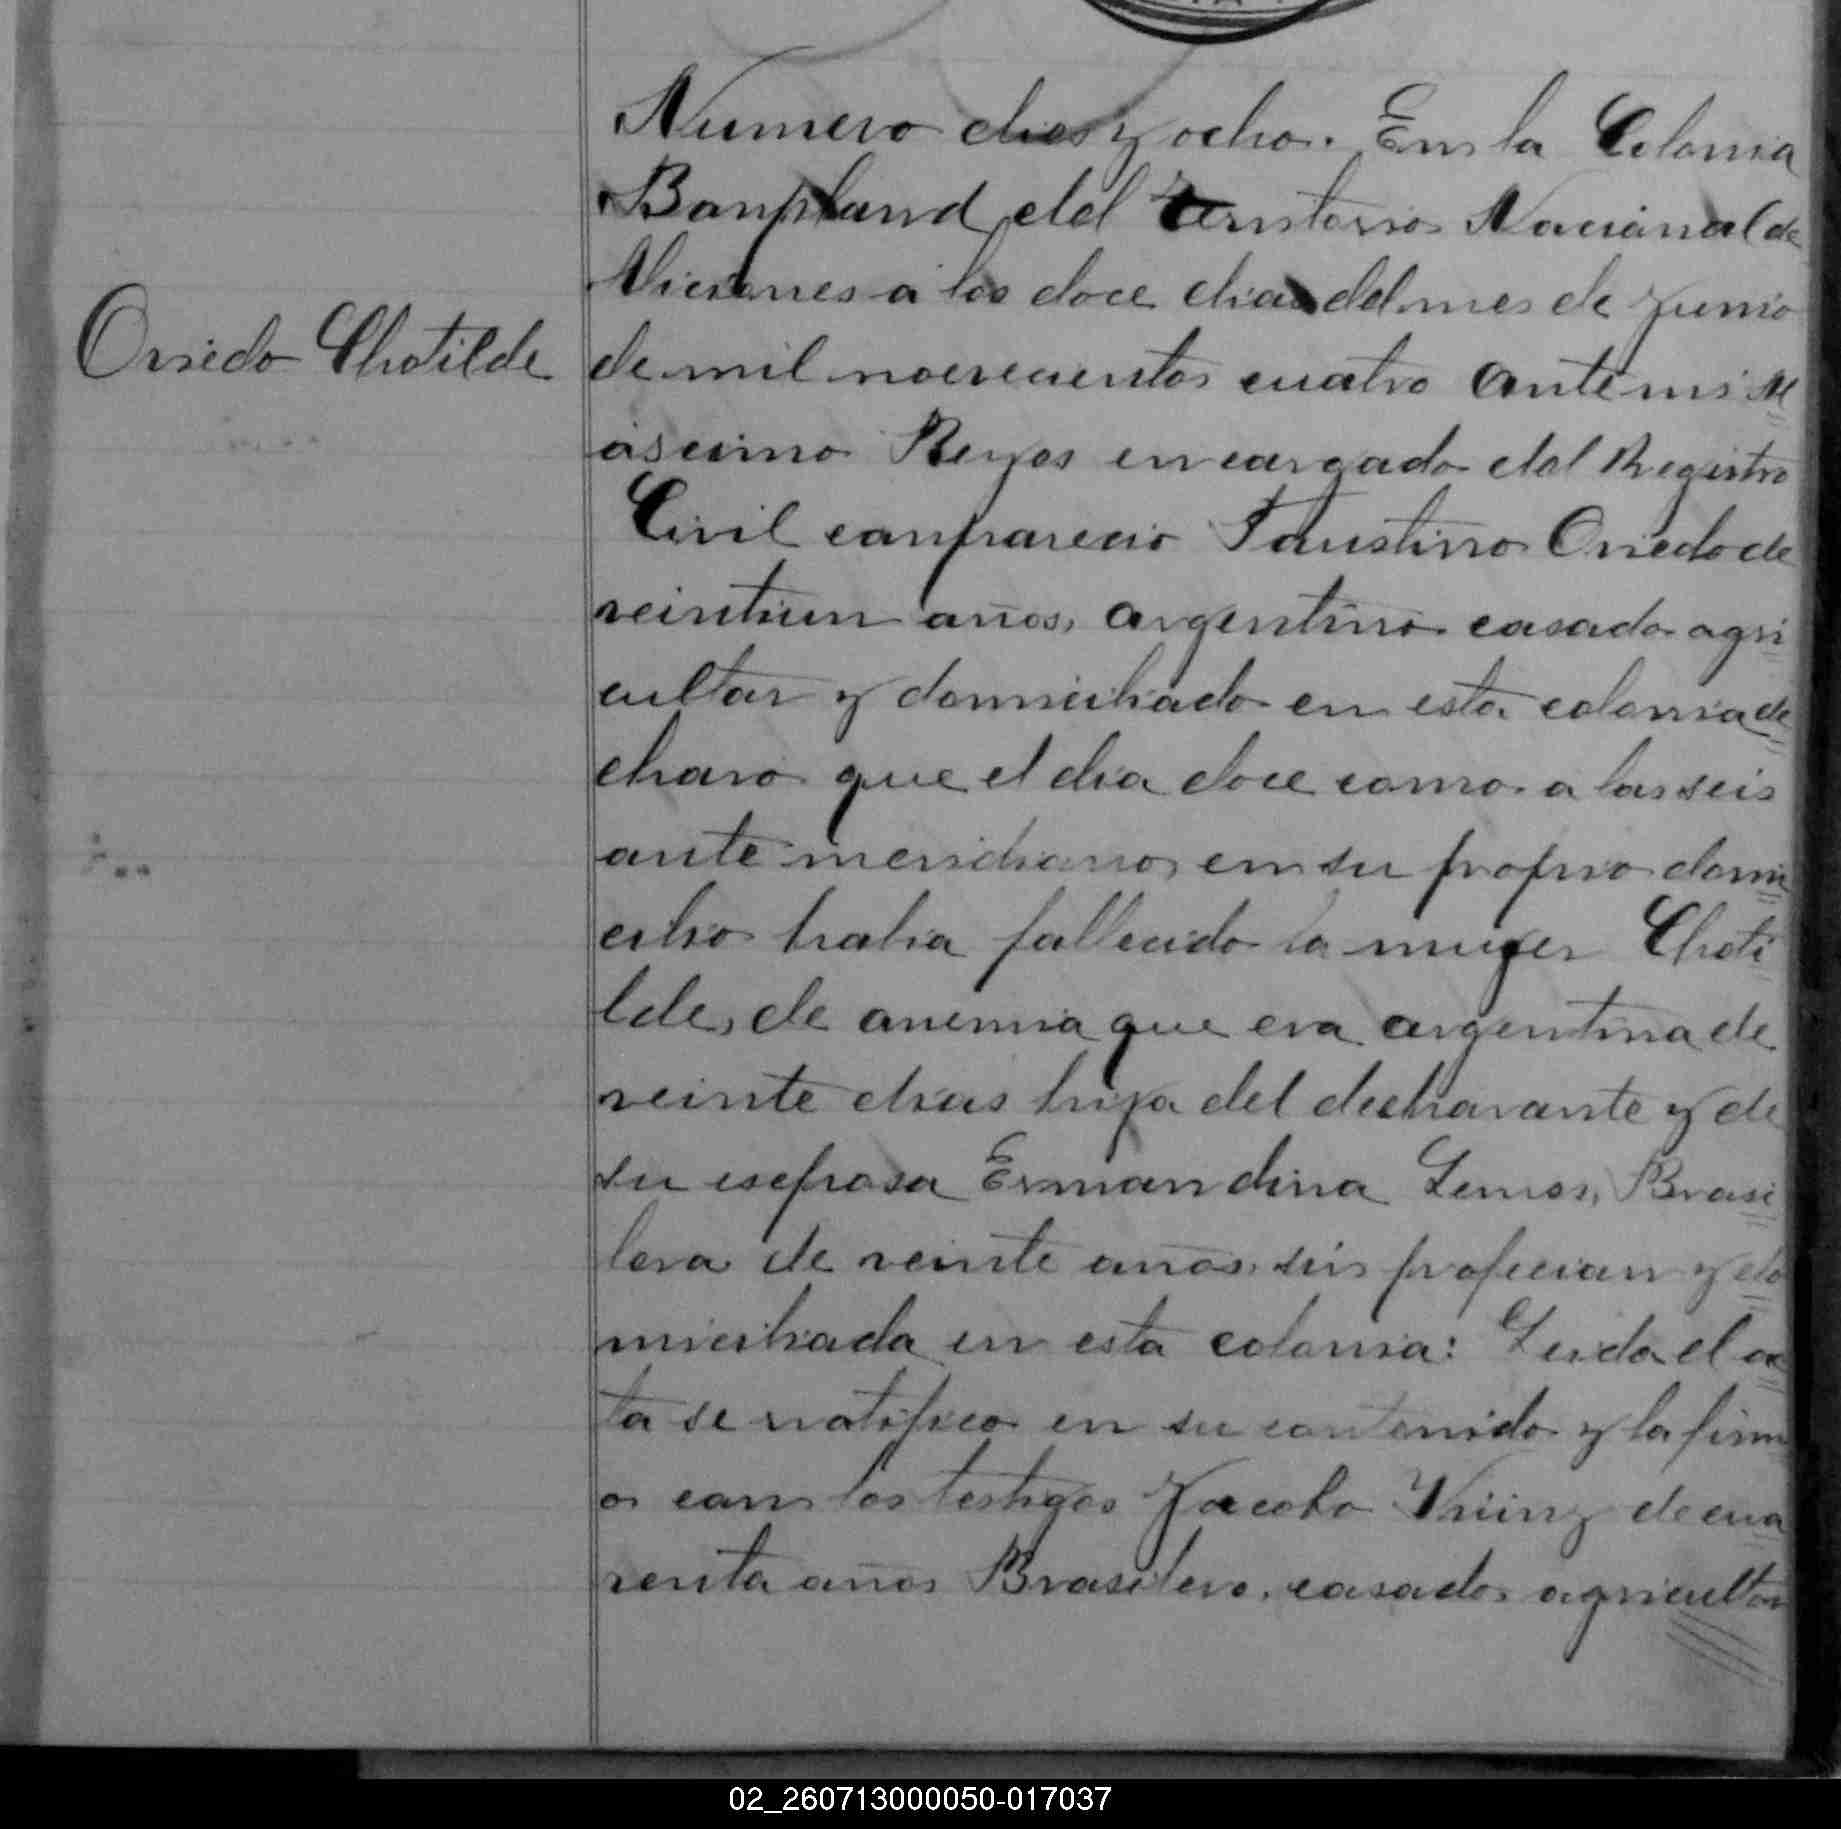 Numero dies y ocho. En la Colonia
Banpland del Territorio Nacional de
Miciones a los doce dias del mes de Junio
Oviedo Clotilde
de mil novecientos cuatro ante mi M
ascimo Reyes encargado del Registro
Civil conparecio Faustino Oviedo de
veintiun años, argentino casado agri
cultor y domiciliado en esta colonia de
claro que el dia doce como a las seis
ante meridiano, en su propio domi
cilio habia fallecido la mujer Cloti
lde, de anemia que era argentina de
veinte dias hija del declarante y de
su esposa Ermandina Lemos, Brasi
lera de veinte años sin profecion y do
miciliada en esta colonia: Leida el ac
ta se ratifico en su contenido y la firm
o con los testigos Jacobo de cua
renta años Brasilero, casado, agricultor
02_260713000050-017037